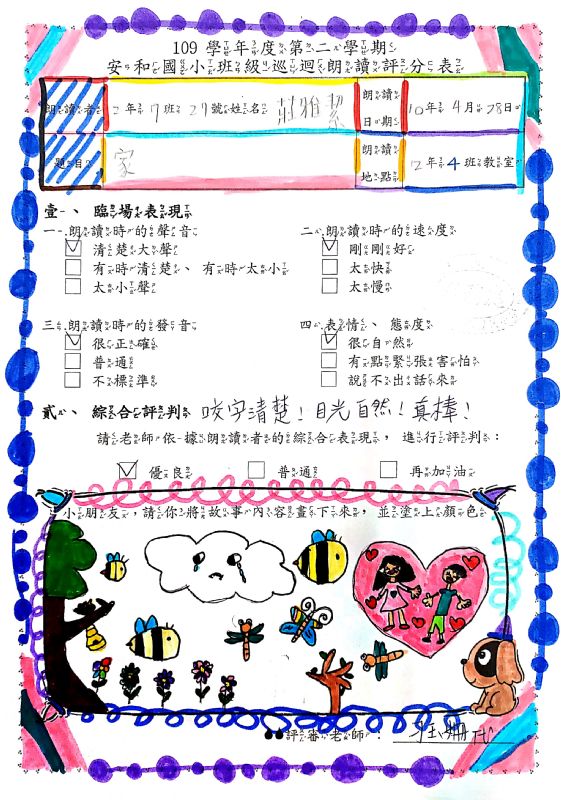 109 學年度第二學期
安和國小班級巡迴朗讀評分表
朗讀者 2年7班27號姓名 莊雅絜 朗讀日期 110年4月28日
題目 家 朗讀地點 2年4班教室
壹、臨場表現
一、朗讀時的聲音 二、朗讀時的速度
清楚大聲 剛剛好
有時清楚、有時太小 太快
太小聲 太慢
三、朗讀時的發音 四、表情、態度
很正確 很自然
普通 有點緊張害怕
不標準 說不出話來
貳、綜合評判 咬字清楚！目光自然！真棒！
請老師依據朗讀者的綜合表現，進行評判：
優良 普通 再加油
小朋友，請你將故事內容畫下來，並塗上顏色
評審老師：